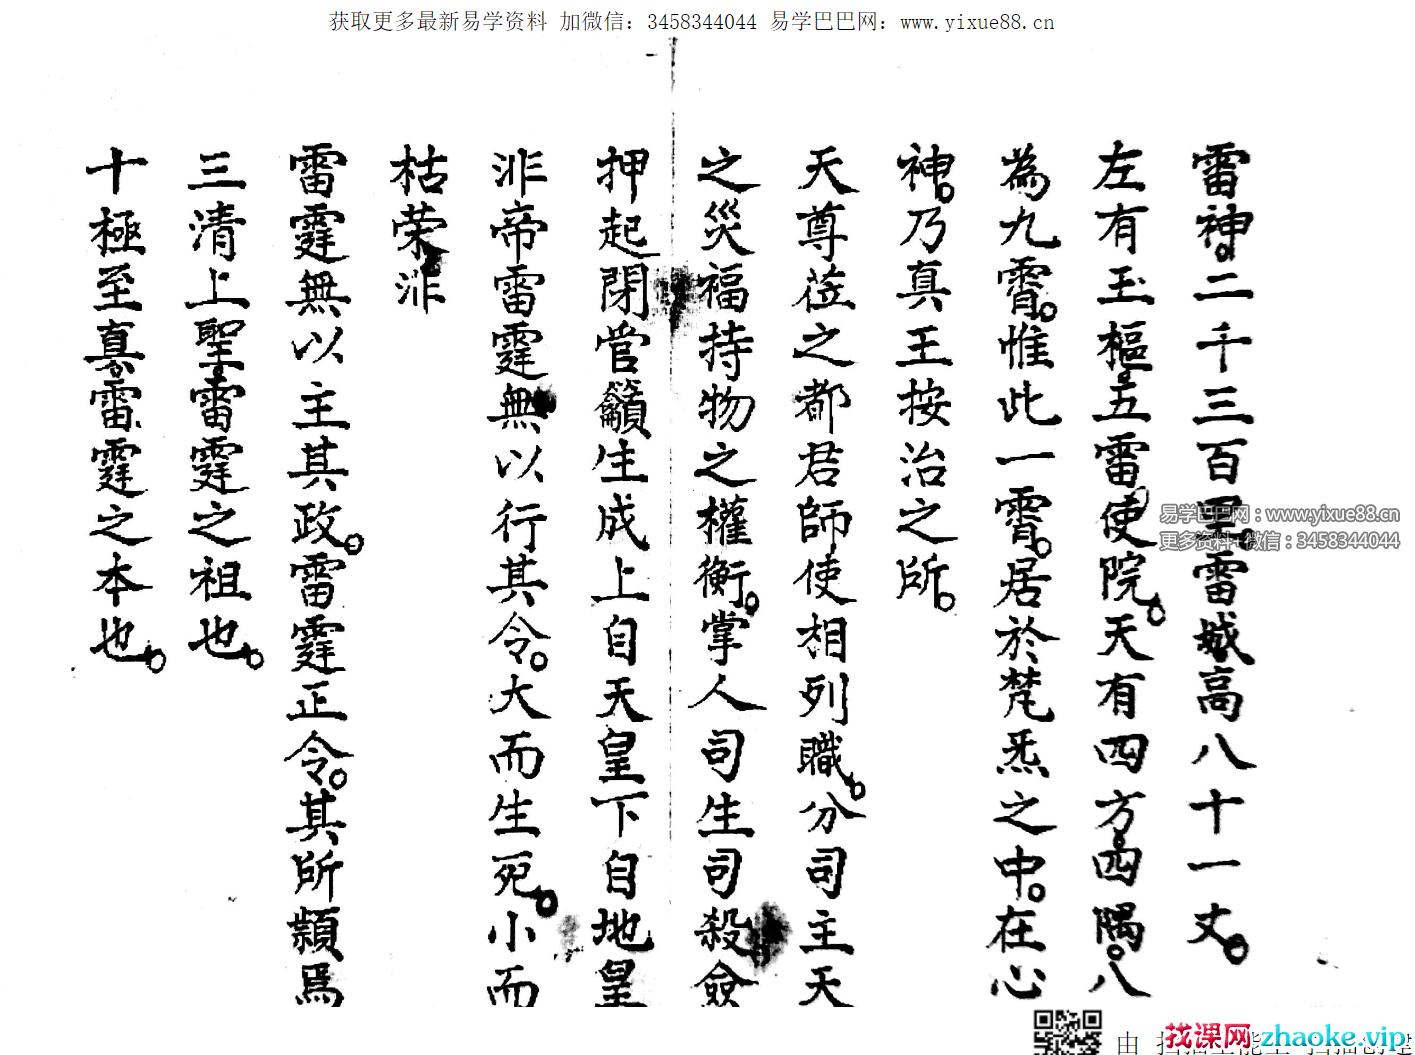 获取更多最新易学资料 加微信：3458344044 易学巴巴网：www.yixue88.cn
雷神二千三百里雷城高八十一丈
左有玉樞五雷使院天有四方四隅八
為九霄惟此一霄居於梵炁之中在心
神乃真王按治之所
天尊莅之都君師使相列職分司主天
之災福持物之權衡掌人司生司殺僉
押起閉管籲生成上自天皇下自地皇
非帝雷霆無以行其令大而生死小而
枯荣非
雷霆無以主其政雷霆正令其所顙焉
三清上聖雷霆之祖也
十極至真雷霆之本也
易学巴巴网：www.yixue88.cn
更多资料+微信：3458344044
找课网 zhaoke.vip